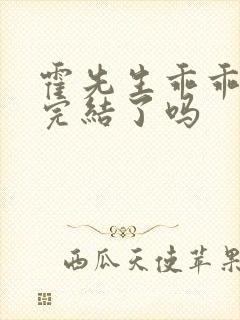 霍先生乖乖
完結了吗
西瓜天使苹果